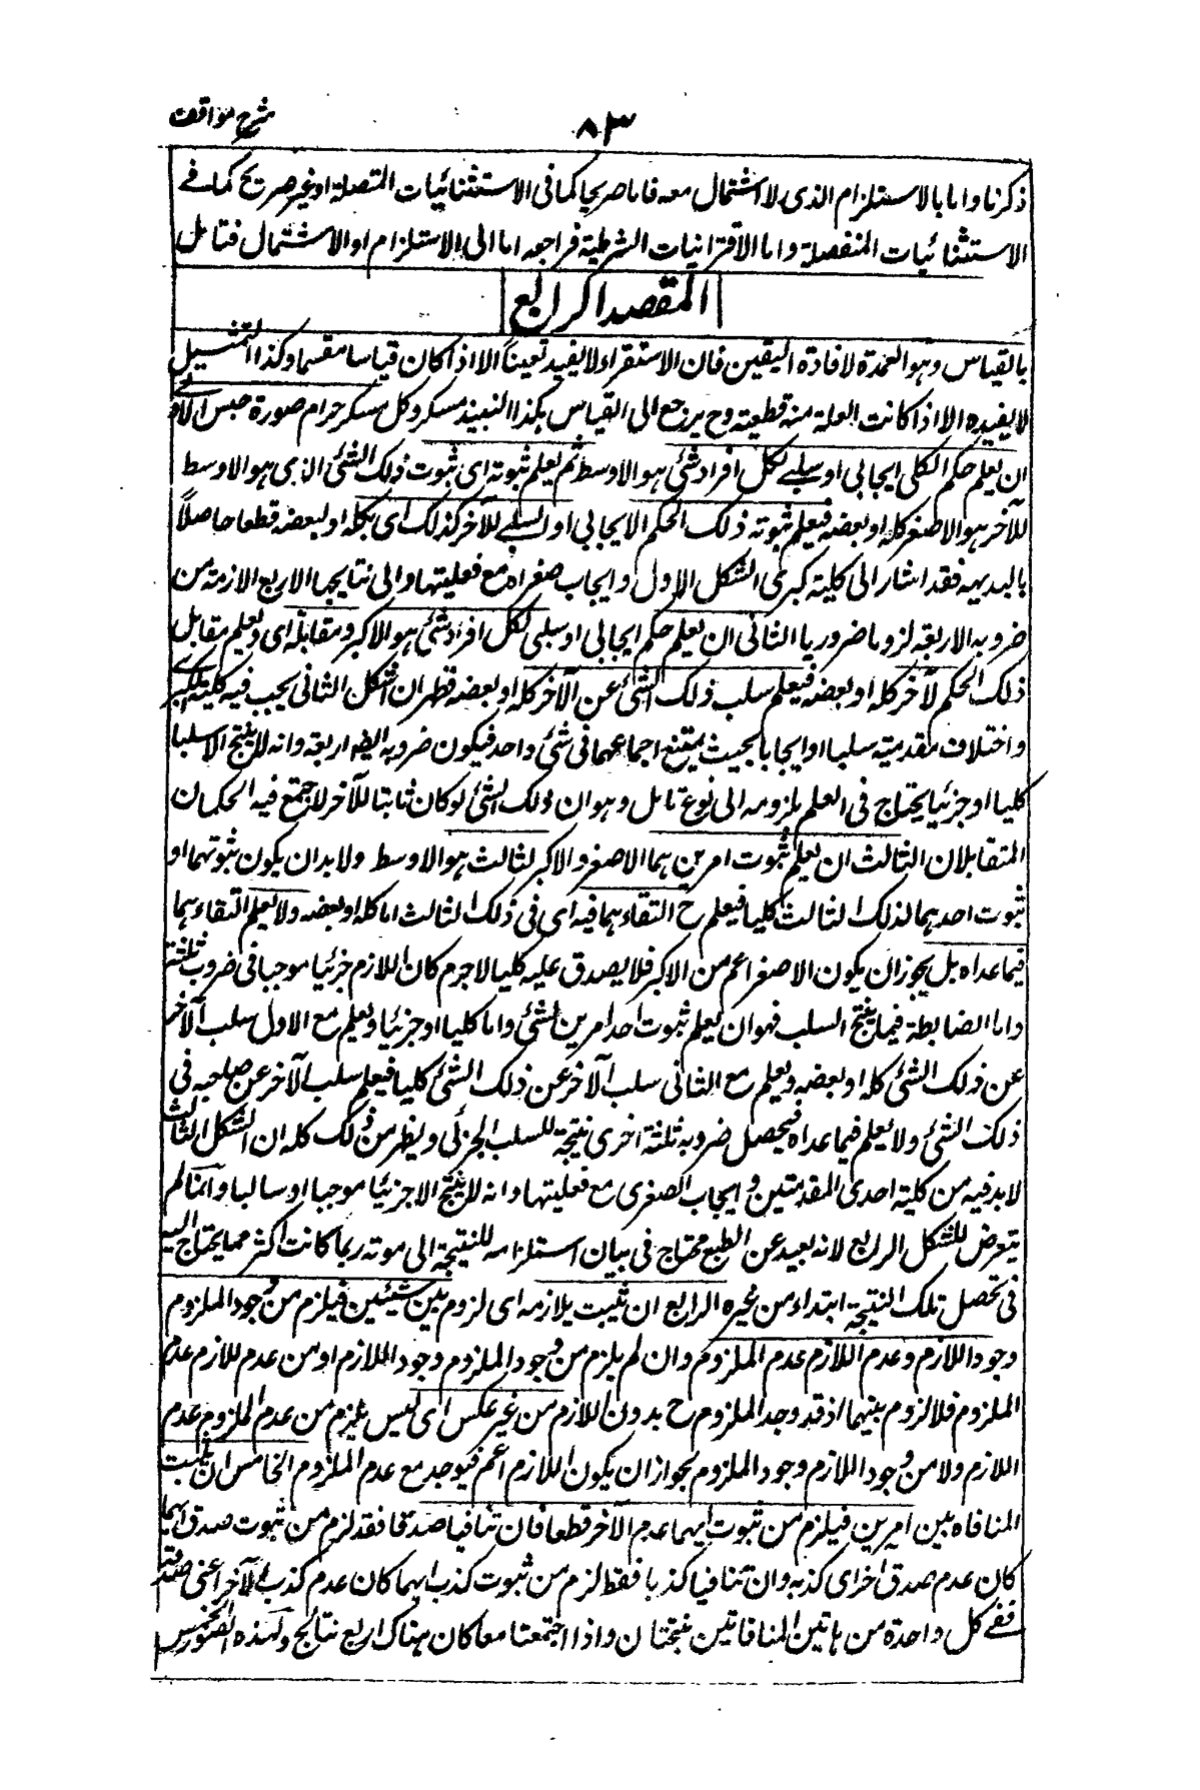 شرح مواقف
٨٣
ذكرنا واما بالاستلزام الذى لا اشتمال معه فاما صريحا كما فى الاستثنائيات المتصلة او غير صريح كما فے
الاستثنائيات المنفصلة واما الاقترانيات الشرطية فراجعه اما الى الاستلزام او الاشتمال فتامل
المقصد الرابع
بالقياس وهو العمدة لافادة اليقين فان الاستقراء لا يفيد تعيناً الا اذا كان قياسا مقسما وكذا التمثيل
لا يفيده الا اذا كانت العلة منه قطعية وح يرجع الى القياس هكذا النبيذ مسكر وكل مسكر حرام صورة خمس الاولے
ان يعلم حكم الكلى ايجابى او سلبے لكل افراد شئ هو الاوسط ثم يعلم ثبوته اى ثبوت ذلك الشئ الذى هو الاوسط
للآخر هو الاصغر كله او بعضه فيعلم ثبوته ذلك الحكم الايجابى او السلبے للآخر كذلك اى بكله او لبعضه قطعا حاصلاً
بالبديهه فقد اشار الى كلية كبرى الشكل الاول وايجاب صغراه مع فعليتها والى نتايجها الاربع الازمة من
ضروبه الاربعة لزوما ضروريا الثانى ان يعلم حكم ايجابى او سلبى لكل افراد شئ هو الاكبر ومقابلة اى ويعلم مقابل
ذلك الحكم لآخر كله او بعضه فيعلم سلب ذلك الشئ عن الآخر كله او بعضه فظهر ان الشكل الثانى يجب فيه كلية الكبرى
واختلاف مقدمتيه سلبا او ايجابا بحيث يمتنع اجتماعهما فى شئ واحد فيكون ضروبه ايضا اربعة وانه لا ينتج الا سلبا
كليا او جزئيا يحتاج فى العلم بلزومه الى نوع تامل وهو ان ذلك الشئ لو كان ثابتا للآخر لاجتمع فيه الحكمان
المتقابلان الثالث ان يعلم ثبوت امرين هما الاصغر والاكبر لثالث هو الاوسط ولا بد ان يكون ثبوتهما او
ثبوت احدهما لذلك الثالث كليا فيعلم ح التقاءهما فيه اى فى ذلك الثالث اما كله او بعضه ولا يعلم التقاءهما
فيما عداه بل يجوز ان يكون الاصغر اعم من الاكبر فلا يصدق عليه كليا لاجرم كان اللازم جزئيا موجبا فى ضروب ثلثة
واما الضابطة فيما ينتج السلب فهو ان يعلم ثبوت احد امرين لشئ واما كليا او جزئيا ويعلم مع الاول سلب الآخر
عن ذلك الشئ كله او بعضه ويعلم مع الثانى سلب الآخر عن ذلك الشئ كليا فيعلم سلب الآخر عن صاحبه فى
ذلك الشئ ولا يعلم فيما عداه فيحصل ضروبه ثلثة اخرى نتيجة للسلب الجزئى ويظهر من ذلك كله ان الشكل الثالث
لا بد فيه من كلية احدى المقدمتين وايجاب الصغرى مع فعليتها وانه لا ينتج الا جزئيا موجبا او سالبا وانما لم
يتعرض للشكل الرابع لانه بعيد عن الطبع محتاج فى بيان استلزامه للنتيجة الى موته ربما كانت اكثر مما يحتاج اليه
فى تحصل تلك النتيجة ابتداء من غيره الرابع ان يثبت بلازمه اى لزوم بين شيئين فيلزم من وجود الملزوم
وجود اللازم وعدم اللازم عدم الملزوم وان لم يلزم من وجود الملزوم وجود اللازم او من عدم للازم عدم
الملزوم فلا لزوم بينهما اذ قد وجد الملزوم ح بدون اللازم من غير عكس اى ليس يلزم من عدم الملزوم عدم
اللازم ولا من وجود اللازم وجود الملزوم لجواز ان يكون اللازم اعم فيوجد مع عدم الملزوم الخامس ان يثبت
المنافاه بين امرين فيلزم من ثبوت ايهما عدم الآخر قطعا فان تنافيا صدقا فقد لزم من ثبوت صدق ايهما
كان عدم صدق اخراى كذبه وان تنافيا كذبا فقط لزم من ثبوت كذب ايهما كان عدم كذب الآخر اعنى صدقه
ففے كل واحدة من هاتين المنافاتين نتيجتان واذا اجتمعتا معا كان هناك اربع نتائج ولهذه الصور الخمس